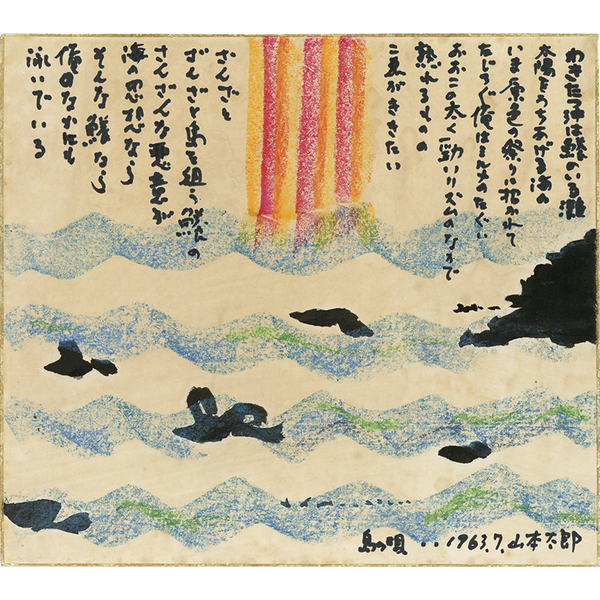 わきたつ沖は鱶のいる灘
太陽をうちあげる海の
いま原色の祭りに招かれて
たじろぐ俺は のたぐい
おおこの太く勁いリズムのなかで
熟れるものの
こえがききたい
ざんざと
ざんざと島を狙う鱶の
さんざんな悪意が
海の思想なら
そんな鱶なら
俺のなかにも
泳いでいる
島の唄 ・・1963.7.山本太郎